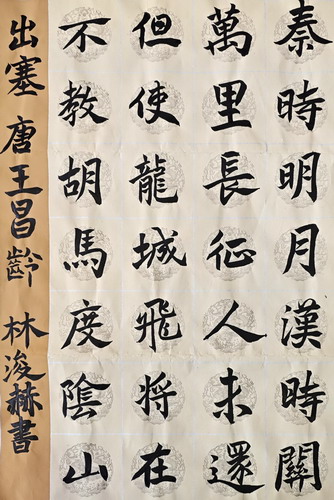 秦時明月漢時關
萬里長征人未還
但使龍城飛將在
不教胡馬度陰山
出塞 唐王昌齡 林浚赫書